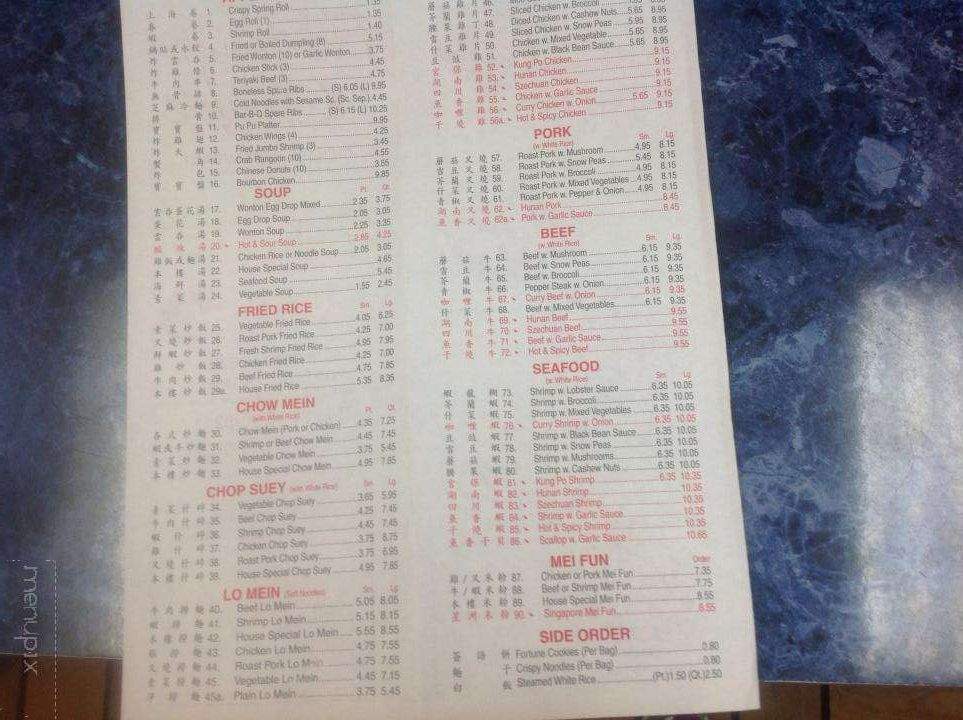 上 海 卷 1. Crispy Spring Roll 1.35
春 卷 2. Egg Roll (1) 1.35
蝦 卷 3. Shrimp Roll 1.40
鍋貼或水餃 4. Fried or Boiled Dumpling (8) 5.15
炸 雲 吞 5. Fried Wonton (10) or Garlic Wonton 3.75
炸 雞 條 6. Chicken Stick (3) 4.45
牛 肉 串 7. Teriyaki Beef (3) 4.75
無 骨 排 8. Boneless Spare Ribs (S) 6.05 (L) 9.95
芝 麻 冷 麵 9. Cold Noodles with Sesame Sc. (Sc. Sep.) 4.45
排 骨 10. Bar-B-Q Spare Ribs (S) 6.15 (L) 10.25
寶 寶 盤 11. Pu Pu Platter 9.95
炸 雞 翅 12. Chicken Wings (4) 4.25
炸 大 蝦 13. Fried Jumbo Shrimp (3) 3.45
蟹 角 14. Crab Rangoon (10) 4.55
炸 包 15. Chinese Donuts (10) 3.55
寶 寶 盤 16. Bourbon Chicken 9.85
SOUP
Pt. Qt.
雲吞蛋花湯 17. Wonton Egg Drop Mixed 2.35 3.75
蛋 花 湯 18. Egg Drop Soup 2.05 3.05
雲 吞 湯 19. Wonton Soup 2.25 3.35
酸 辣 湯 20. Hot & Sour Soup 2.85 4.25
雞飯或麵湯 21. Chicken Rice or Noodle Soup 2.05 3.05
本 樓 湯 22. House Special Soup 4.65
海 鮮 湯 23. Seafood Soup 5.45
素 菜 湯 24. Vegetable Soup 1.55 2.45
FRIED RICE Sm. Lg.
素 菜 炒 飯 25. Vegetable Fried Rice 4.05 6.25
叉 燒 炒 飯 26. Roast Pork Fried Rice 4.25 7.00
鮮 蝦 炒 飯 27. Fresh Shrimp Fried Rice 4.95 7.95
雞 炒 飯 28. Chicken Fried Rice 4.25 7.00
牛 肉 炒 飯 29. Beef Fried Rice 4.75 7.85
本 樓 炒 飯 29a. House Fried Rice 5.35 8.35
CHOW MEIN
(with White Rice) Pt. Qt.
各 式 炒 麵 30. Chow Mein (Pork or Chicken) 4.35 7.25
蝦或牛炒麵 31. Shrimp or Beef Chow Mein 4.45 7.45
素 菜 炒 麵 32. Vegetable Chow Mein 3.75 5.45
本 樓 炒 麵 33. House Special Chow Mein 4.95 7.85
CHOP SUEY (with White Rice) Sm. Lg.
素 菜 什 碎 34. Vegetable Chop Suey 3.65 5.95
牛 肉 什 碎 35. Beef Chop Suey 4.25 7.45
蝦 什 碎 36. Shrimp Chop Suey 4.45 7.45
雞 什 碎 37. Chicken Chop Suey 3.75 6.75
叉 燒 什 碎 38. Roast Pork Chop Suey 3.75 6.95
本 樓 什 碎 39. House Special Chop Suey 4.95 7.85
LO MEIN (Soft Noodles) Sm. Lg.
牛 肉 撈 麵 40. Beef Lo Mein 5.05 8.05
蝦 撈 麵 41. Shrimp Lo Mein 5.15 8.15
本 樓 撈 麵 42. House Special Lo Mein 5.55 8.55
雞 撈 麵 43. Chicken Lo Mein 4.75 7.55
叉 燒 撈 麵 44. Roast Pork Lo Mein 4.75 7.55
素 菜 撈 麵 45. Vegetable Lo Mein 4.45 7.15
淨 撈 麵 45a. Plain Lo Mein 3.75 5.45
芥 蘭 雞 片 47. Sliced Chicken w. Broccoli 8.95
腰 果 雞 丁 48. Diced Chicken w. Cashew Nuts 5.65 8.95
雪 豆 雞 片 49. Sliced Chicken w. Snow Peas 5.65 8.95
什 菜 雞 片 50. Chicken w. Mixed Vegetable 5.65 8.95
豆 豉 雞 51. Chicken w. Black Bean Sauce 5.65 8.95
宮 保 雞 52. Kung Po Chicken 9.15
湖 南 雞 53. Hunan Chicken 9.15
四 川 雞 54. Szechuan Chicken 9.15
魚 香 雞 55. Chicken w. Garlic Sauce 9.15
咖 喱 雞 56. Curry Chicken w. Onion 5.65 9.15
干 燒 雞 56a. Hot & Spicy Chicken 9.15
PORK
(w. White Rice) Sm. Lg.
蘑 菇 叉 燒 57. Roast Pork w. Mushroom 4.95 8.15
雪 豆 叉 燒 58. Roast Pork w. Snow Peas 5.45 8.15
芥 蘭 叉 燒 59. Roast Pork w. Broccoli 4.95 8.15
什 菜 叉 燒 60. Roast Pork w. Mixed Vegetables 4.95 8.15
青 椒 叉 燒 61. Roast Pork w. Pepper & Onion 4.95 8.15
湖 南 叉 燒 62. Hunan Pork 8.45
魚 香 叉 燒 62a. Pork w. Garlic Sauce 8.45
BEEF
(w. White Rice) Sm. Lg.
蘑 菇 牛 63. Beef w. Mushroom 6.15 9.35
雪 豆 牛 64. Beef w. Snow Peas 6.15 9.35
芥 蘭 牛 65. Beef w. Broccoli 6.15 9.35
青 椒 牛 66. Pepper Steak w. Onion 6.15 9.35
咖 喱 牛 67. Curry Beef w. Onion 6.15 9.35
什 菜 牛 68. Beef w. Mixed Vegetables 6.15 9.35
湖 南 牛 69. Hunan Beef 9.55
四 川 牛 70. Szechuan Beef 9.55
魚 香 牛 71. Beef w. Garlic Sauce 9.55
干 燒 牛 72. Hot & Spicy Beef 9.55
SEAFOOD
(w. White Rice) Sm. Lg.
蝦 龍 糊 73. Shrimp w. Lobster Sauce 6.35 10.05
芥 蘭 蝦 74. Shrimp w. Broccoli 6.35 10.05
什 菜 蝦 75. Shrimp w. Mixed Vegetables 6.35 10.05
咖 喱 蝦 76. Curry Shrimp w. Onion 6.35 10.05
豆 豉 蝦 77. Shrimp w. Black Bean Sauce 6.35 10.05
雪 豆 蝦 78. Shrimp w. Snow Peas 6.35 10.05
蘑 菇 蝦 79. Shrimp w. Mushrooms 6.35 10.05
腰 果 蝦 80. Shrimp w. Cashew Nuts 6.35 10.05
宮 保 蝦 81. Kung Po Shrimp 6.35 10.35
湖 南 蝦 82. Hunan Shrimp 10.35
四 川 蝦 83. Szechuan Shrimp 10.35
魚 香 蝦 84. Shrimp w. Garlic Sauce 10.35
干 燒 蝦 85. Hot & Spicy Shrimp 10.35
魚 香 干 貝 86. Scallop w. Garlic Sauce 10.65
MEI FUN Order
雞 / 叉 米 粉 87. Chicken or Pork Mei Fun 7.35
牛 / 蝦 米 粉 88. Beef or Shrimp Mei Fun 7.75
本 樓 米 粉 89. House Special Mei Fun 8.55
星 洲 米 粉 90. Singapore Mei Fun 8.55
SIDE ORDER
簽 語 餅 Fortune Cookies (Per Bag) 0.80
麵 干 Crispy Noodles (Per Bag) 0.80
白 飯 Steamed White Rice (Pt.) 1.50 (Qt.) 2.50
menupix